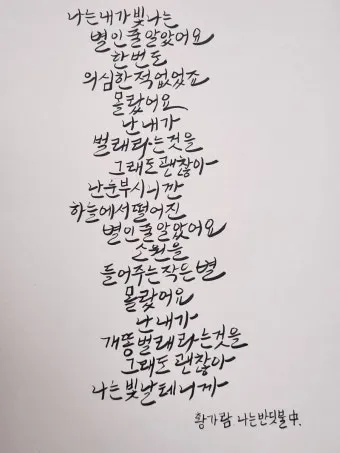 나는 내가 빛나는
별인 줄 알았어요
한번도
의심한 적 없었죠
몰랐어요
난 내가
벌레라는 것을
그래도 괜찮아
난 눈부시니깐
하늘에서 떨어진
별인 줄 알았어요
소원을
들어주는 작은 별
몰랐어요
난 내가
개똥벌레라는 것을
그래도 괜찮아
나는 빛날 테니까
황가람 나는 반딧불 中.